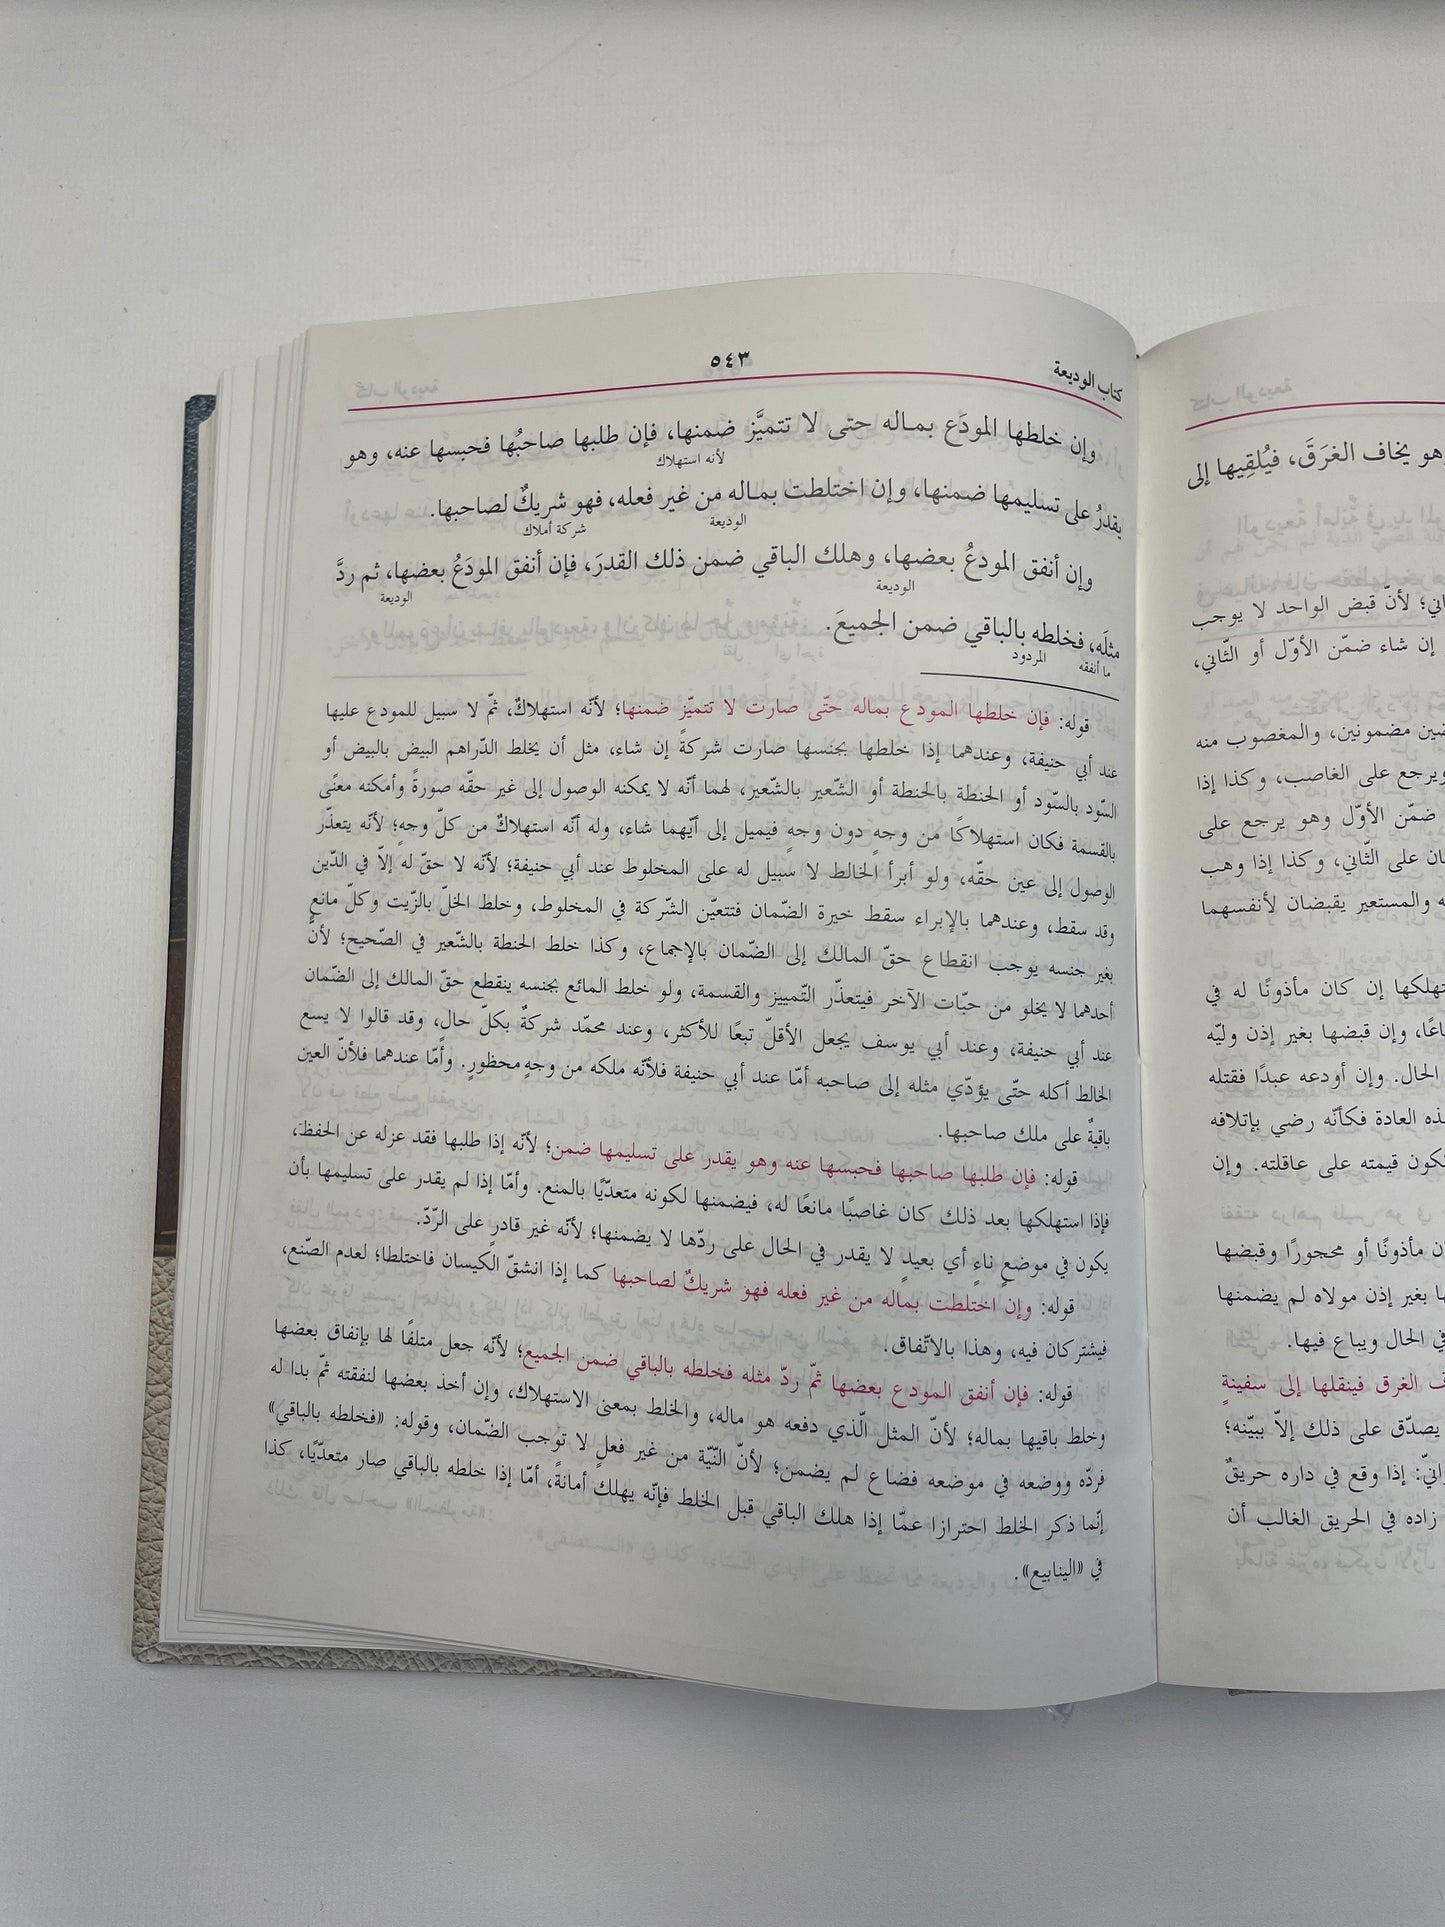 كتاب الوديعة
٥٤٣
وإن خلطها المودَع بماله حتى لا تتميَّز ضمنها، فإن طلبها صاحبُها فحبسها عنه، وهو
لأنه استهلاك
يقدرُ على تسليمها ضمنها، وإن اختلطت بماله من غير فعله، فهو شريكٌ لصاحبها.
الوديعة
شركة أملاك
وإن أنفق المودعُ بعضها، وهلك الباقي ضمن ذلك القدرَ، فإن أنفق المودَعُ بعضها، ثم ردَّ
الوديعة
الوديعة
مثلَه، فخلطه بالباقي ضمن الجميعَ.
ما أنفقه
المردود
قوله: فإن خلطها المودع بماله حتّى صارت لا تتميّز ضمنها؛ لأنّه استهلاكٌ، ثمّ لا سبيل للمودع عليها
عند أبي حنيفة، وعندهما إذا خلطها بجنسها صارت شركةً إن شاء، مثل أن يخلط الدّراهم البيض بالبيض أو
السّود بالسّود أو الحنطة بالحنطة أو الشّعير بالشّعير، لهما أنّه لا يمكنه الوصول إلى غير حقّه صورةً وأمكنه معنًى
بالقسمة فكان استهلاكًا من وجهٍ دون وجهٍ فيميل إلى أيّهما شاء، وله أنّه استهلاكٌ من كلّ وجهٍ؛ لأنّه يتعذّر
الوصول إلى عين حقّه، ولو أبرأ الخالط لا سبيل له على المخلوط عند أبي حنيفة؛ لأنّه لا حقّ له إلاّ في الدّين
وقد سقط، وعندهما بالإبراء سقط خيرة الضّمان فتتعيّن الشّركة في المخلوط، وخلط الخلّ بالزّيت وكلّ مانعٍ
بغير جنسه يوجب انقطاع حقّ المالك إلى الضّمان بالإجماع، وكذا خلط الحنطة بالشّعير في الصّحيح؛ لأنّ
أحدهما لا يخلو من حبّات الآخر فيتعذّر التّمييز والقسمة، ولو خلط المائع بجنسه ينقطع حقّ المالك إلى الضّمان
عند أبي حنيفة، وعند أبي يوسف يجعل الأقلّ تبعًا للأكثر، وعند محمّد شركةٌ بكلّ حالٍ، وقد قالوا لا يسع
الخالط أكله حتّى يؤدّي مثله إلى صاحبه أمّا عند أبي حنيفة فلأنّه ملكه من وجهٍ محظورٍ. وأمّا عندهما فلأنّ العين
باقيةٌ على ملك صاحبها.
قوله: فإن طلبها صاحبها فحبسها عنه وهو يقدر على تسليمها ضمن؛ لأنّه إذا طلبها فقد عزله عن الحفظ،
فإذا استهلكها بعد ذلك كان غاصبًا مانعًا له، فيضمنها لكونه متعدّيًا بالمنع. وأمّا إذا لم يقدر على تسليمها بأن
يكون في موضعٍ ناءٍ أي بعيدٍ لا يقدر في الحال على ردّها لا يضمنها؛ لأنّه غير قادرٍ على الرّدّ.
قوله: وإن اختلطت بماله من غير فعله فهو شريكٌ لصاحبها كما إذا انشقّ الكيسان فاختلطا؛ لعدم الصّنع،
فيشتركان فيه، وهذا بالاتّفاق.
قوله: فإن أنفق المودع بعضها ثمّ ردّ مثله فخلطه بالباقي ضمن الجميع؛ لأنّه جعل متلفًا لها بإنفاق بعضها
وخلط باقيها بماله؛ لأنّ المثل الّذي دفعه هو ماله، والخلط بمعنى الاستهلاك، وإن أخذ بعضها لنفقته ثمّ بدا له
فردّه ووضعه في موضعه فضاع لم يضمن؛ لأنّ النّيّة من غير فعلٍ لا توجب الضّمان، وقوله: «فخلطه بالباقي»
إنّما ذكر الخلط احترازا عمّا إذا هلك الباقي قبل الخلط فإنّه يهلك أمانةً، أمّا إذا خلطه بالباقي صار متعدّيًا، كذا
في «الينابيع».
وهو يخاف الغرَقَ، فيُلقِيها إلى
لأنّ قبض الواحد لا يوجب
إن شاء ضمّن الأوّل أو الثّاني،
مضمونين، والمغصوب منه
ويرجع على الغاصب، وكذا إذا
ضمّن الأوّل وهو يرجع على
على الثّاني، وكذا إذا وهب
والمستعير يقبضان لأنفسهما
إن كان مأذونًا له في
وإن قبضها بغير إذن وليّه
الحال. وإن أودعه عبدًا فقتله
العادة فكأنّه رضي بإتلافه
قيمته على عاقلته. وإن
مأذونًا أو محجورًا وقبضها
بغير إذن مولاه لم يضمنها
في الحال ويباع فيها.
الغرق فينقلها إلى سفينةٍ
يصدّق على ذلك إلاّ ببيّنه؛
إذا وقع في داره حريقٌ
زاده في الحريق الغالب أن